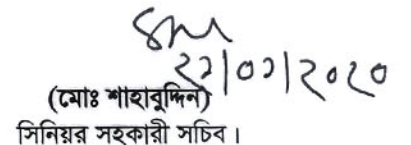 ২২|০১|২০২০
(মোঃ শাহাবুদ্দিন)
সিনিয়র সহকারী সচিব।